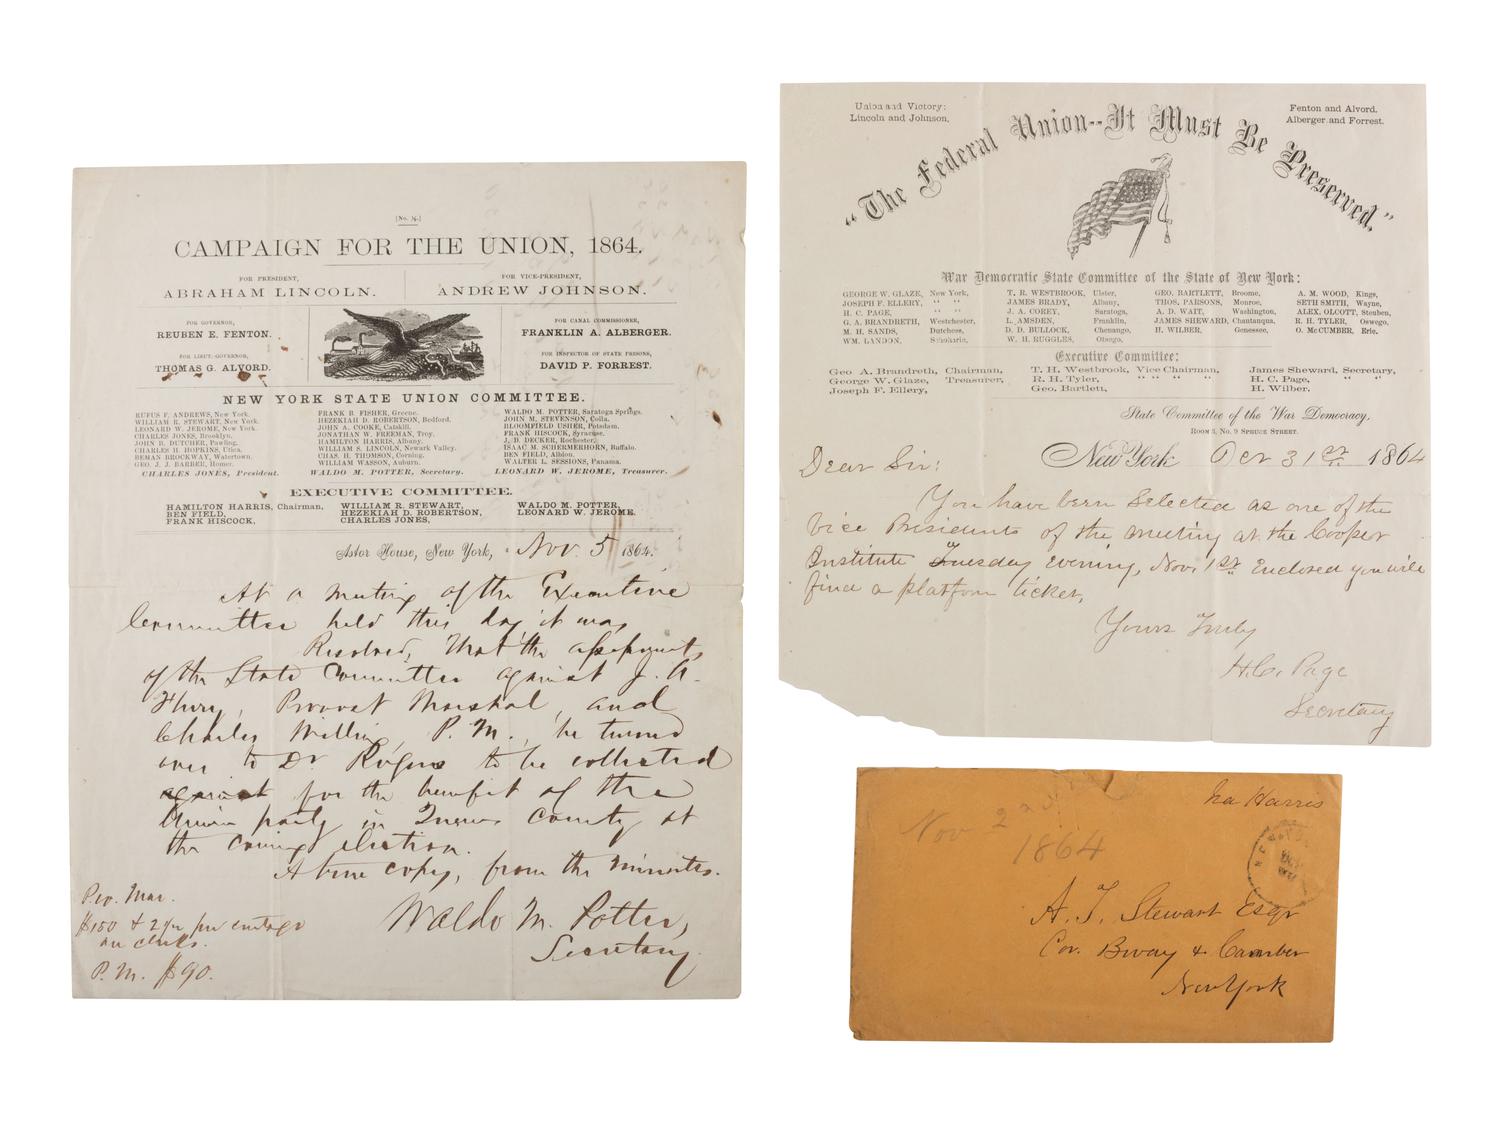 [No. ¾.]
CAMPAIGN FOR THE UNION, 1864.
FOR PRESIDENT,
ABRAHAM LINCOLN.
FOR VICE-PRESIDENT,
ANDREW JOHNSON.
FOR GOVERNOR,
REUBEN E. FENTON.
FOR LIEUT.-GOVERNOR,
THOMAS G. ALVORD.
FOR CANAL COMMISSIONER,
FRANKLIN A. ALBERGER.
FOR INSPECTOR OF STATE PRISONS,
DAVID P. FORREST.
NEW YORK STATE UNION COMMITTEE.
RUFUS F. ANDREWS, New York.
WILLIAM R. STEWART, New York.
LEONARD W. JEROME, New York.
CHARLES JONES, Brooklyn.
JOHN B. DUTCHER, Pawling.
CHARLES H. HOPKINS, Utica.
BEMAN BROCKWAY, Watertown.
GEO. J. J. BARBER, Homer.
CHARLES JONES, President.
FRANK B. FISHER, Greene.
HEZEKIAH D. ROBERTSON, Bedford.
JOHN A. COOKE, Catskill.
JONATHAN W. FREEMAN, Troy.
HAMILTON HARRIS, Albany.
WILLIAM S. LINCOLN, Newark Valley.
CHAS. H. THOMSON, Corning.
WILLIAM WASSON, Auburn.
WALDO M. POTTER, Secretary.
WALDO M. POTTER, Saratoga Springs.
JOHN M. STEVENSON, Coila.
BLOOMFIELD USHER, Potsdam.
FRANK HISCOCK, Syracuse.
J. D. DECKER, Rochester.
ISAAC M. SCHERMERHORN, Buffalo.
BEN FIELD, Albion.
WALTER L. SESSIONS, Panama.
LEONARD W. JEROME, Treasurer.
EXECUTIVE COMMITTEE.
HAMILTON HARRIS, Chairman,
BEN FIELD,
FRANK HISCOCK,
WILLIAM R. STEWART,
HEZEKIAH D. ROBERTSON,
CHARLES JONES,
WALDO M. POTTER,
LEONARD W. JEROME.
Astor House, New York, Nov. 5 1864.
At a meeting of the Executive
Committee held this day it was
Resolved, That the assessments
of the State Committee against J. A.
Provost Marshal, and
Charles P. M., be turned
over to Dr Rogers to be collected
against for the benefit of the
Union party in Queens County at
the coming election.
A true copy, from the minutes.
Waldo M. Potter,
Secretary.
Pro. Mar.
$150 & 2½ percentage
on clerks.
P. M. $90.
Union and Victory:
Lincoln and Johnson.
Fenton and Alvord.
Alberger and Forrest.
"The Federal Union--It Must Be Preserved."
War Democratic State Committee of the State of New York:
GEORGE W. GLAZE, New York,
JOSEPH F. ELLERY, " "
H. C. PAGE, " "
G. A. BRANDRETH, Westchester,
M. H. SANDS, Dutchess,
WM. LANDON, Schoharie,
T. R. WESTBROOK, Ulster,
JAMES BRADY, Albany,
J. A. COREY, Saratoga,
L. AMSDEN, Franklin,
D. D. BULLOCK, Chenango,
W. H. RUGGLES, Otsego,
GEO. BARTLETT, Broome,
THOS. PARSONS, Monroe,
A. D. WAIT, Washington,
JAMES SHEWARD, Chautauqua,
H. WILBER, Genessee,
A. M. WOOD, Kings,
SETH SMITH, Wayne,
ALEX. OLCOTT, Steuben,
R. H. TYLER, Oswego,
O. McCUMBER, Erie.
Executive Committee:
Geo A. Brandreth, Chairman,
George W. Glaze, Treasurer,
Joseph F. Ellery,
T. H. Westbrook, Vice Chairman,
R. H. Tyler, " " " "
Geo. Bartlett,
James Sheward, Secretary,
H. C. Page, " "
H. Wilber.
State Committee of the War Democracy.
ROOM 3, No. 9 SPRUCE STREET.
New York Oct 31st 1864
Dear Sir:
You have been selected as one of the
Vice Presidents of the meeting at the Cooper
Institute Tuesday evening, Nov. 1st Enclosed you will
find a platform ticket,
Yours Truly
H. C. Page
Secretary
Ira Harris
Nov 2nd
1864
A. T. Stewart Esqr
Cor. Bway & Camber
New York